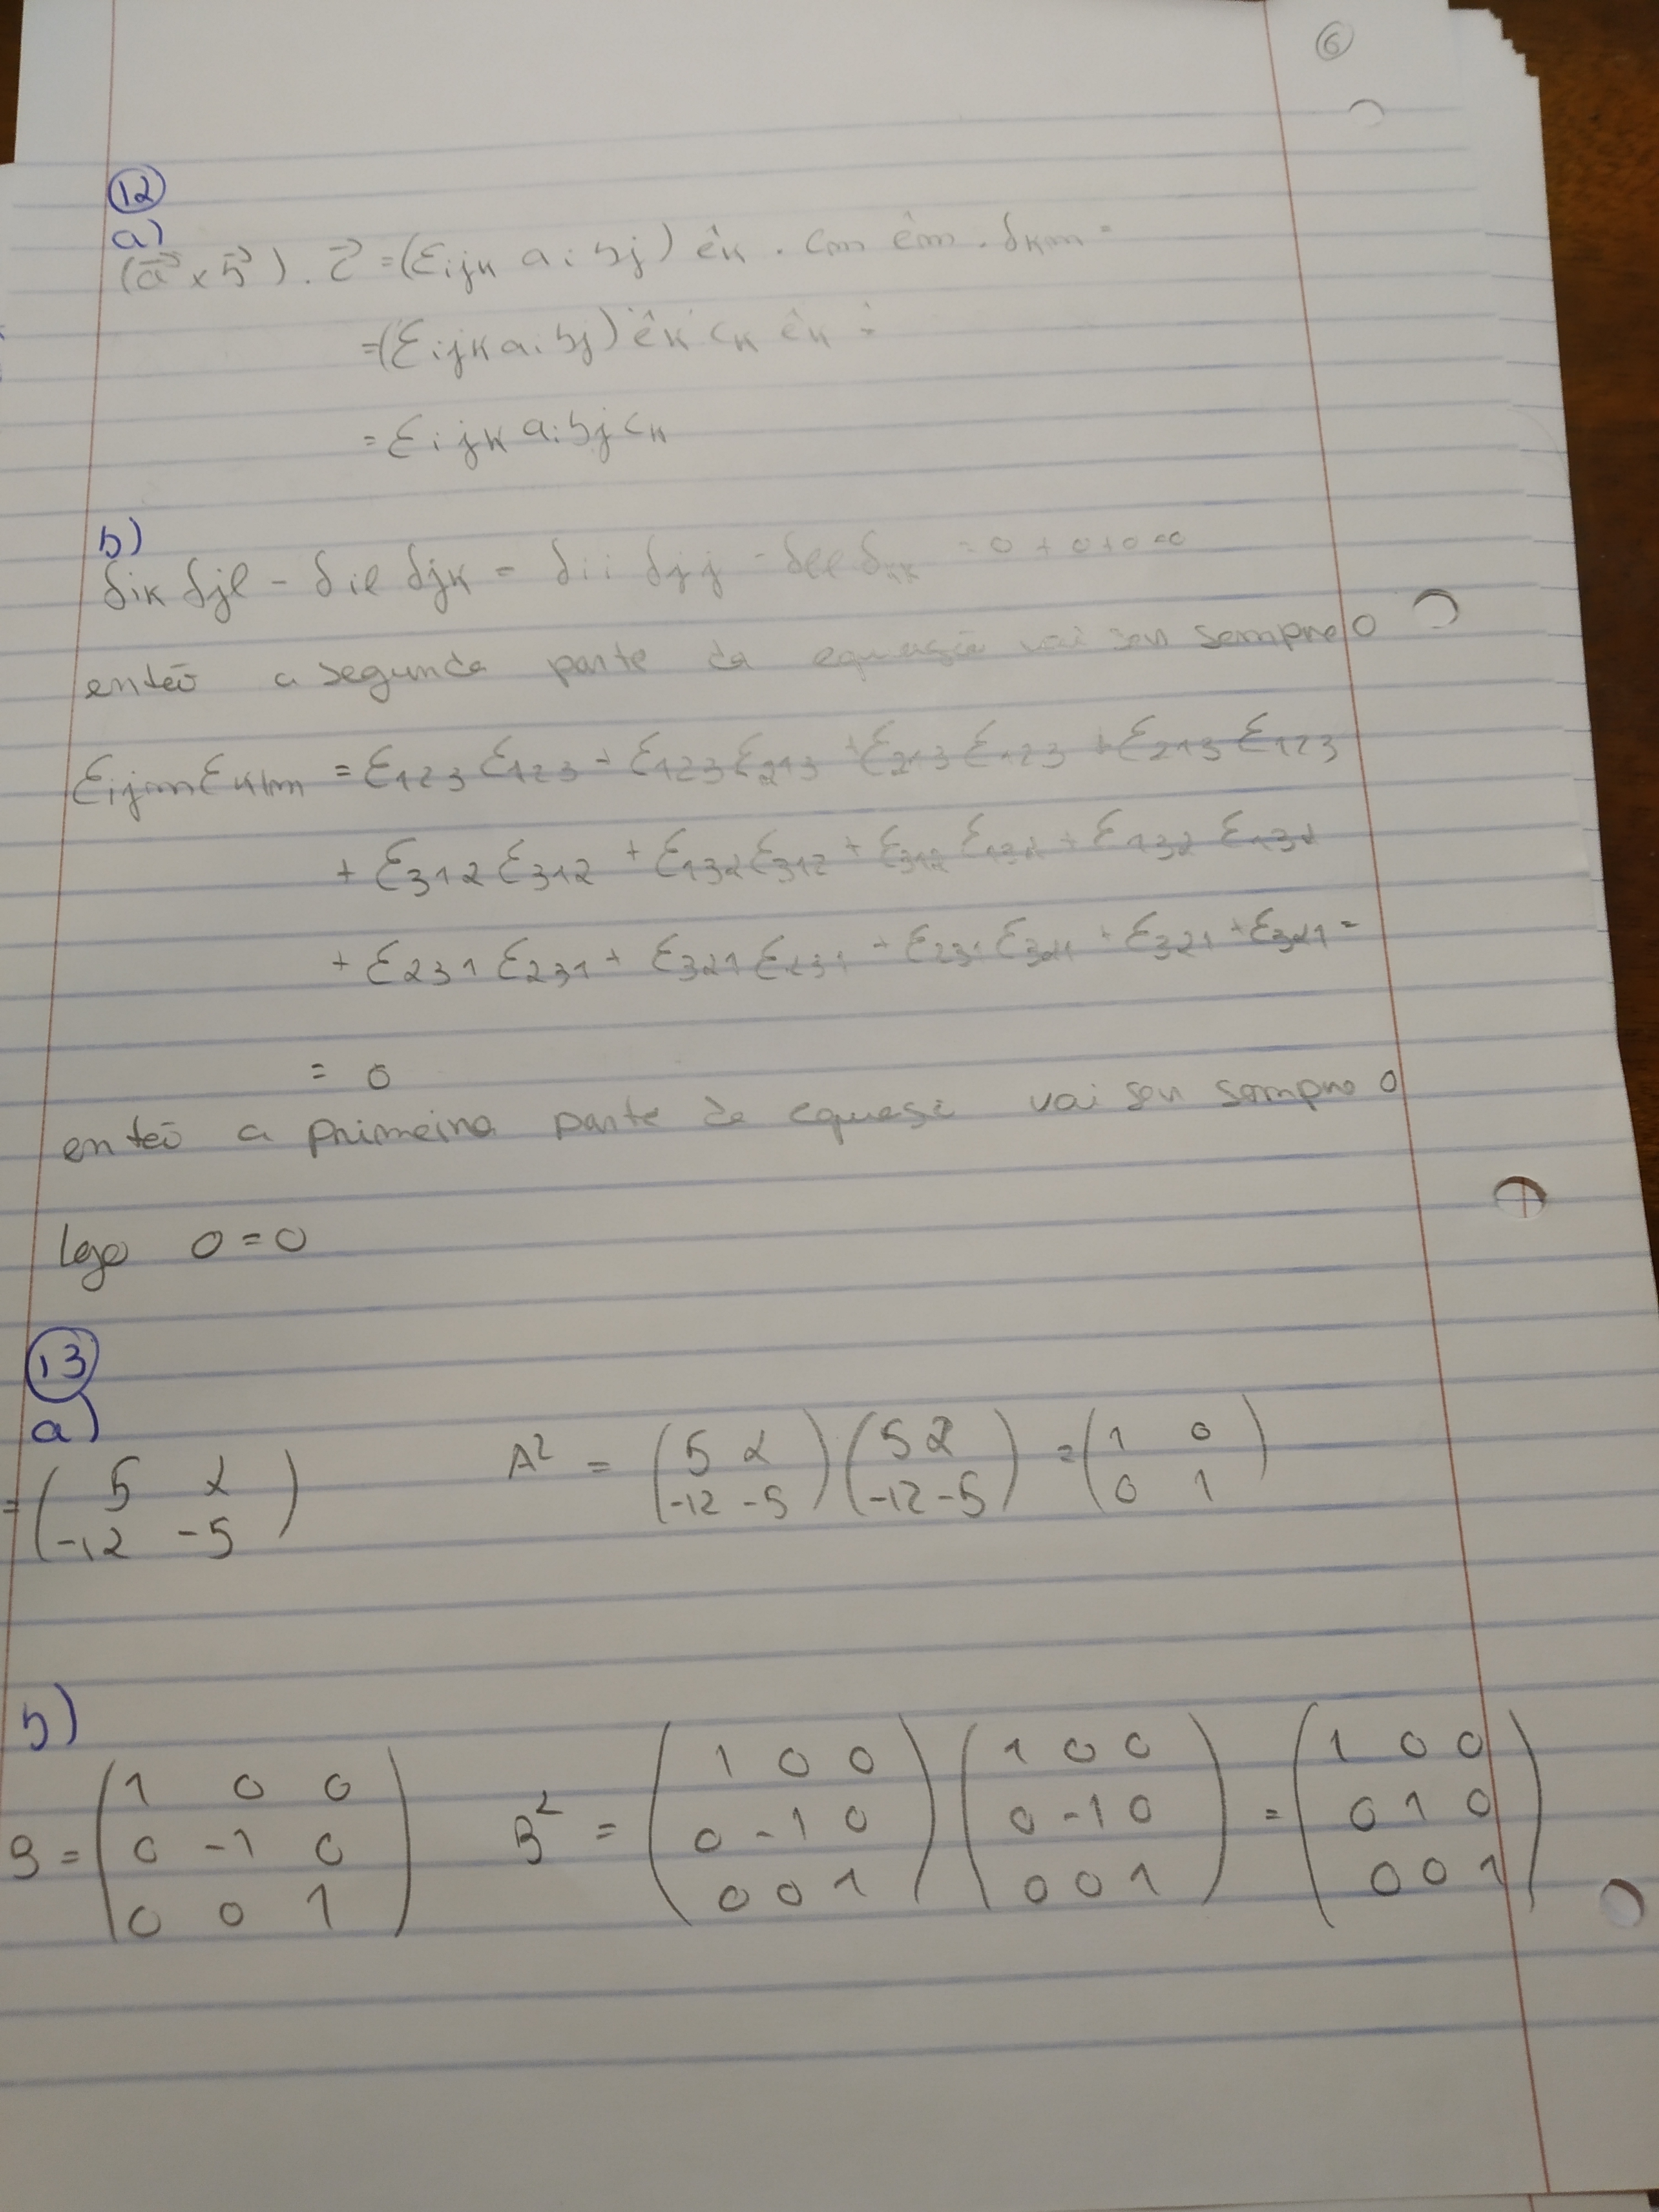 6
12
a)
(a⃗ × b⃗) . c⃗ = (εijk ai bj) êk . cm êm . δkm =
= (εijk ai bj) êk ck êk =
= εijk ai bj ck
b)
δik δjl - δil δjk = δii δjj - δll δkk = 0 + 0 + 0 = 0
então a segunda parte da equação vai ser sempre 0
εijm εklm = ε123 ε123 + ε123 ε213 + ε213 ε123 + ε213 ε123
+ ε312 ε312 + ε132 ε312 + ε312 ε132 + ε132 ε132
+ ε231 ε231 + ε321 ε231 + ε231 ε321 + ε321 + ε321 =
= 0
então a primeira parte da vai ser sempre 0
logo 0 = 0
13
a)
= ( 5 2 ; -12 -5 ) A² = ( 5 2 ; -12 -5 ) ( 5 2 ; -12 -5 ) = ( 1 0 ; 0 1 )
b)
B = ( 1 0 0 ; 0 -1 0 ; 0 0 1 ) B² = ( 1 0 0 ; 0 -1 0 ; 0 0 1 ) ( 1 0 0 ; 0 -1 0 ; 0 0 1 ) = ( 1 0 0 ; 0 1 0 ; 0 0 1 )